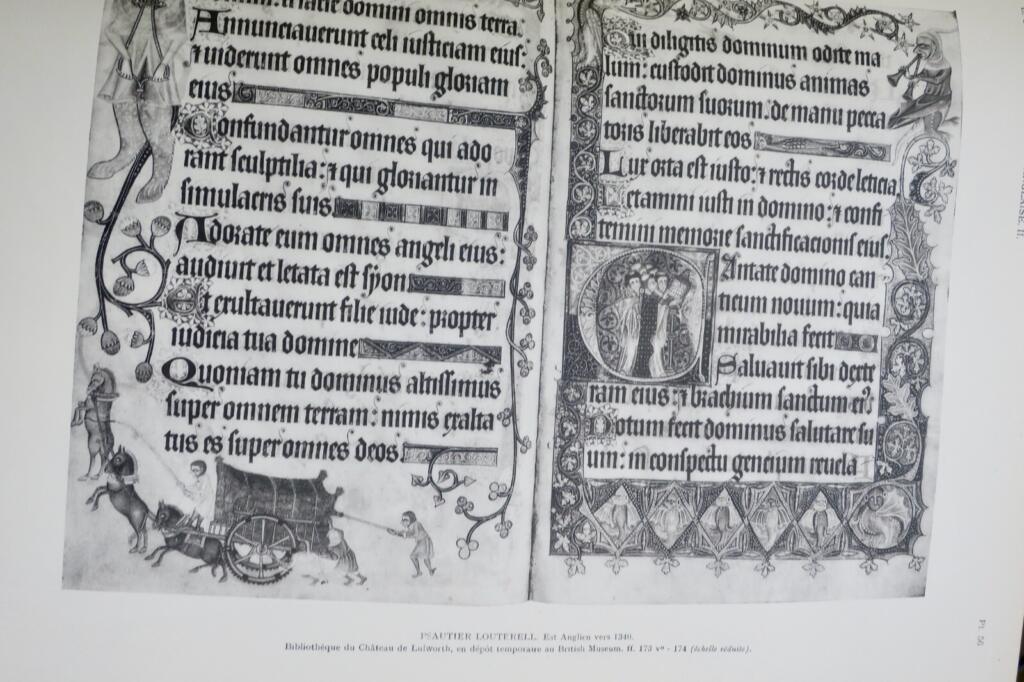 a facie domini omnis terra.
Annunciauerunt celi iusticiam eius:
⁊ uiderunt omnes populi gloriam
eius
Confundantur omnes qui ado
rant sculptilia: ⁊ qui gloriantur in
simulacris suis
Adorate eum omnes angeli eius:
audiuit et letata est syon
Et exultauerunt filie iude: propter
iudicia tua domine
Quoniam tu dominus altissimus
super omnem terram: nimis exalta
tus es super omnes deos
Qui diligitis dominum odite ma
lum: custodit dominus animas
sanctorum suorum: de manu pecca
toris liberabit eos
Lux orta est iusto: ⁊ rectis corde leticia
Letamini iusti in domino: ⁊ confi
temini memorie sanctificacionis eius
Cantate domino can
ticum nouum: quia
mirabilia fecit
Saluauit sibi dexte
ram eius: ⁊ brachium sanctum ei᷒
Notum fecit dominus salutare su
um: in conspectu gencium reuela
PSAUTIER LOUTERELL. Est Anglien vers 1340.
Bibliothèque du Château de Lulworth, en dépôt temporaire au British Museum. ff. 173 vº - 174 (échelle réduite).
Pl. 56